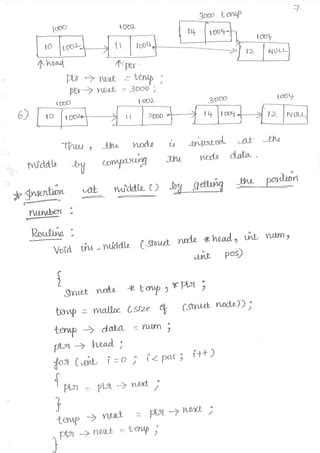 7
3000 temp
1000 1002
14 1004 1004
10 1002 11 1004 12 NULL
↑head ↑ptr
ptr → next = temp ;
ptr → next = 3000 ;
1000 1002 3000 1004
6) 10 1002 11 3000 14 1004 12 NULL
Thus , the node is inserted at the
middle by comparing the node data.
* Insertion at middle () by getting the position
number :
Routine :
Void ins_middle (struct node *head, int num,
int pos)
{
struct node * temp , * ptr ;
temp = malloc (size of (struct node)) ;
temp → data = num ;
ptr → head ;
for (int i = 0 ; i < pos ; i++)
{
ptr = ptr → next ;
}
temp → next = ptr → next ;
ptr → next = temp ;
}